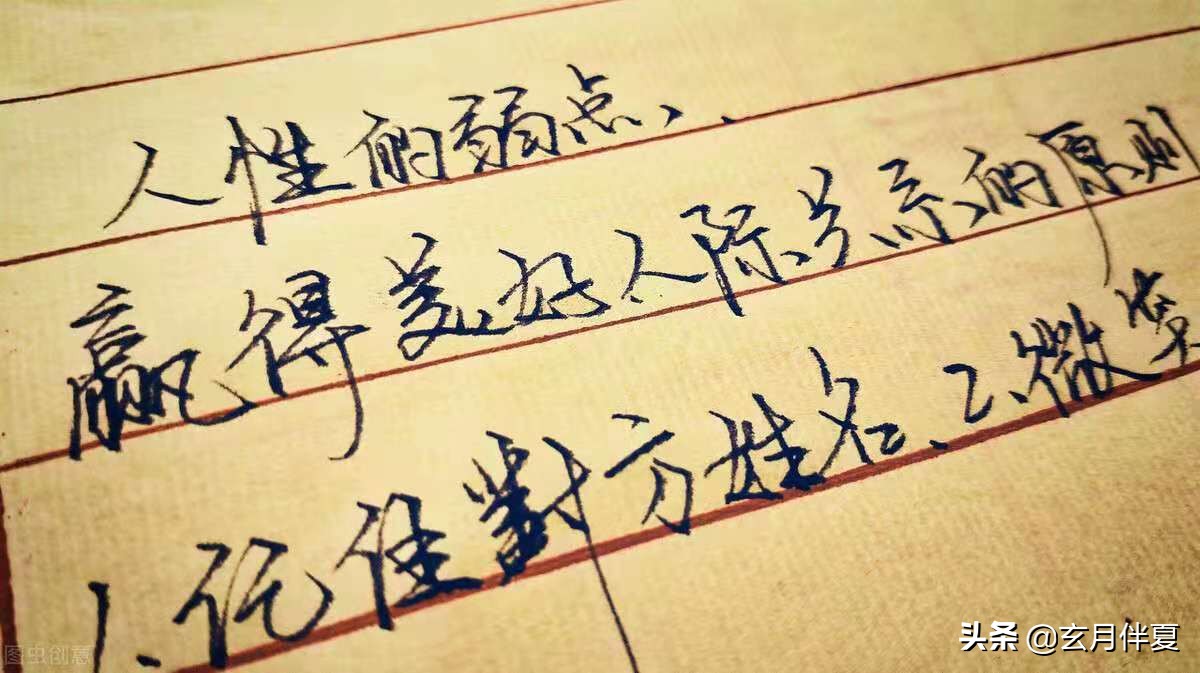 人性的弱点、.
赢得美好人际关系的原则
1.记住對方姓名、2、微笑
图虫创意
头条 @玄月伴夏